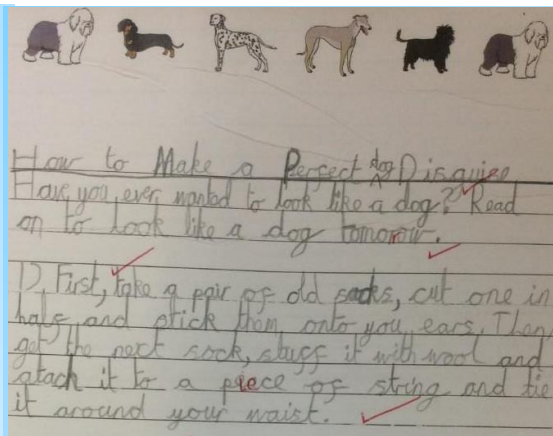 How to Make a Perfect dog Disguise
Have you ever wanted to look like a dog? Read
on to look like a dog tomorow.
1), First, take a pair of old socks, cut one in
half and stick them onto you ears. Then,
get the next sock, stuff it with wool and
atach it to a piece of string and tie
it around your waist.